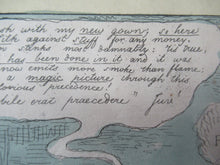 sh with my new gown; so here
with against stuff for any money.
n stinks most damnably: 'tis true,
has been done in it and it was
now emits more smoke than flame.
a magic picture through this
torious "precedence!
bile erat praecedere" Juv!